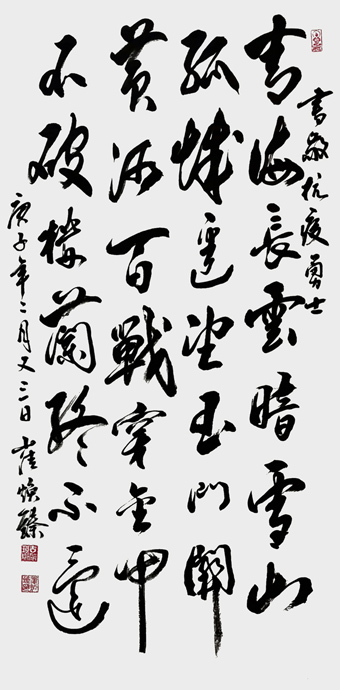 書敬抗疫勇士
青海長雲暗雪山
孤城遥望玉門關
黄沙百戰穿金甲
不破樓蘭終不還
庚子年二月又三日 崔焕臻